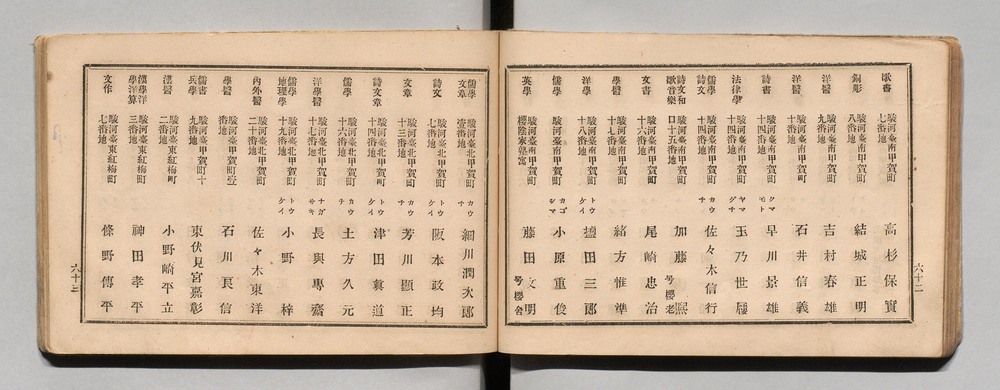 歌書 駿河臺南甲賀町七番地 高杉保實
銅彫 駿河臺南甲賀町八番地 結城正明
洋醫 駿河臺南甲賀町九番地 吉村春雄
洋醫 駿河臺南甲賀町十番地 石井信義
詩書 駿河臺南甲賀町十四番地 クマモト 早川景雄
法律學 駿河臺南甲賀町十四番地 ヤマグチ 玉乃世履
儒學詩文 駿河臺南甲賀町十四番地 カウチ 佐々木信行
詩文和歌音樂 駿河臺南甲賀町口十五番地 加藤熙 号櫻老
文書 駿河臺南甲賀町十六番地 尾崎忠治
學醫 駿河臺南甲賀町十七番地 緒方惟準
洋學 駿河臺南甲賀町十八番地 トウケイ 田三郎
儒學 駿河臺南甲賀町 カゴシマ 小原重俊
英學 駿河臺南甲賀町櫻陰家塾寓 藤田文明 号櫻舍
六十二
儒學文章 駿河臺北甲賀町壹番地 カウチ 細川潤次郎
詩文 駿河臺北甲賀町七番地 トウケイ 阪本政均
文章 駿河臺北甲賀町十三番地 カウチ 芳川顯正
詩文章 駿河臺北甲賀町十四番地 トウケイ 津田眞道
儒學 駿河臺北甲賀町十六番地 カウチ 土方久元
洋學醫 駿河臺北甲賀町十七番地 ナガサキ 長與專齋
儒學地理學 駿河臺北甲賀町十九番地 トウケイ 小野梓
內外醫 駿河臺北甲賀町二十番地 佐々木東洋
學醫 駿河臺甲賀町壹番地 石川良信
儒書兵學 駿河臺甲賀町十九番地 東伏見宮嘉彰
漢醫 駿河臺東紅梅町二番地 小野崎平立
漢學洋學洋算 駿河臺東紅梅町三番地 神田孝平
文作 駿河臺東紅梅町七番地 條野傳平
六十三